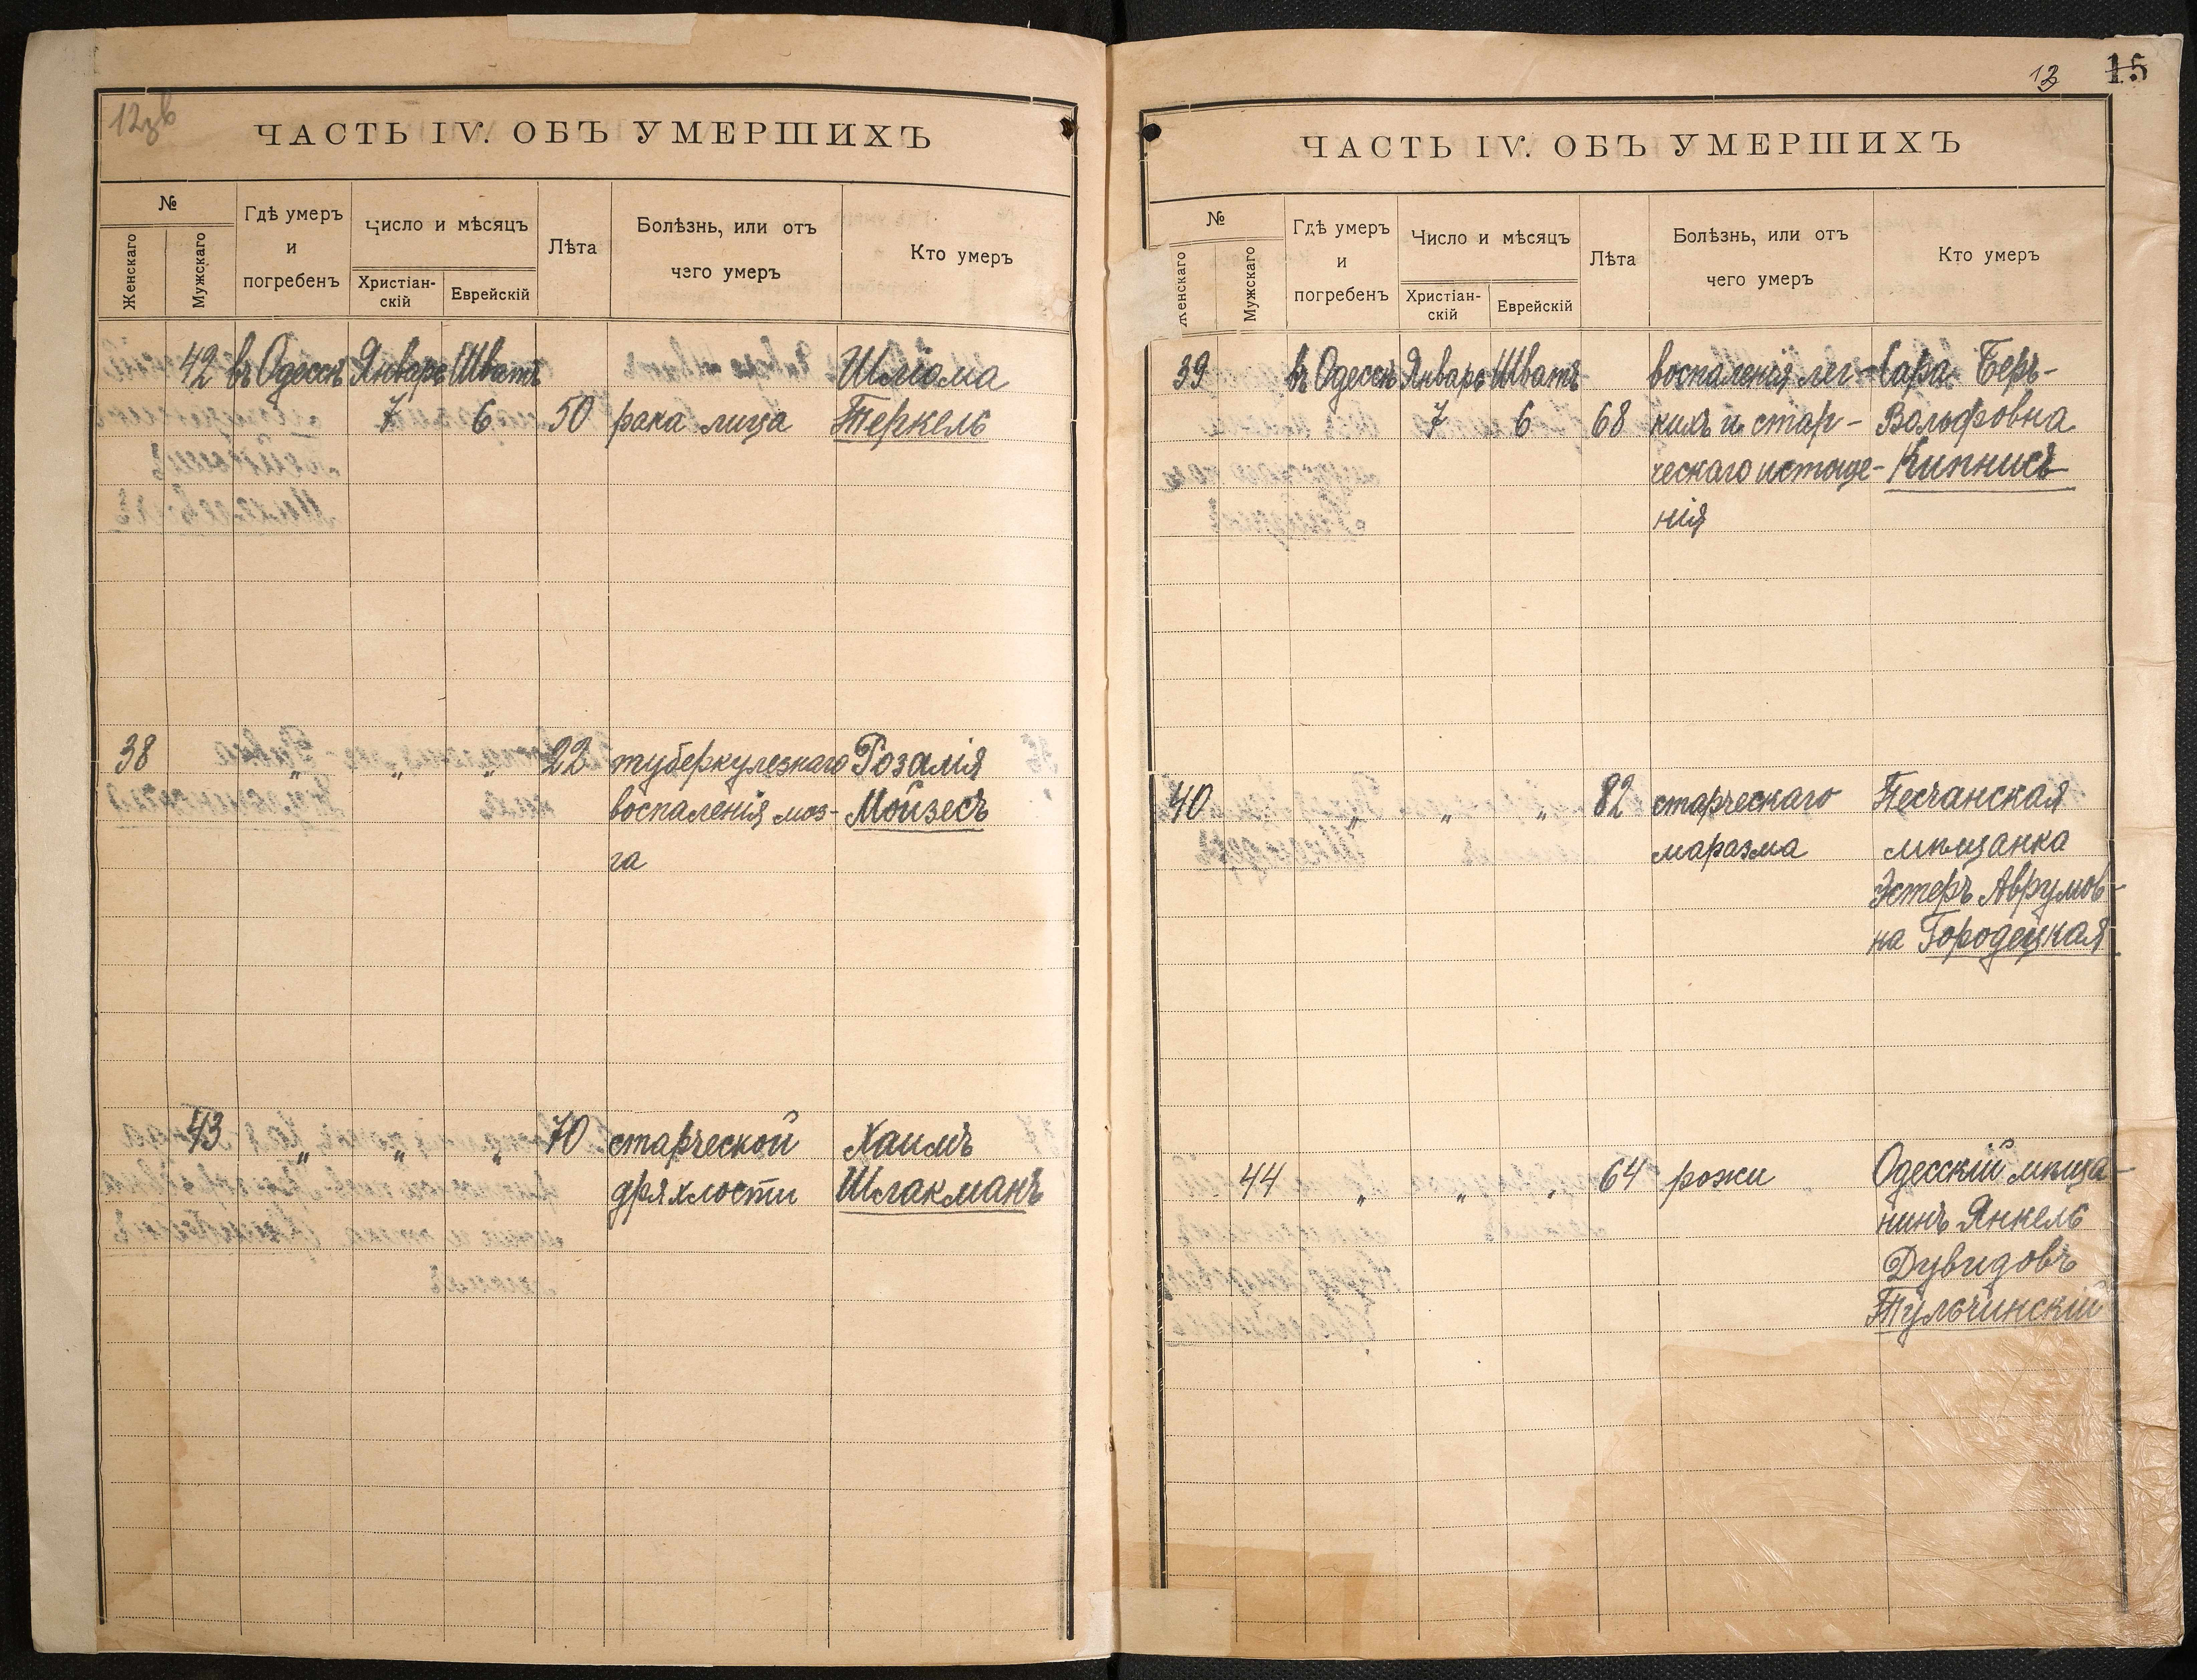 12зв
ЧАСТЬ IV. ОБЪ УМЕРШИХЪ
№
Женскаго
Мужскаго
Гдѣ умеръ
и
погребенъ
Число и мѣсяцъ
Христіан-
скій
Еврейскій
Лѣта
Болѣзнь, или отъ
чего умеръ
Кто умеръ
42 въ Одессѣ Январь Шватъ Шлiома
7 6 50 рака лица Теркель
38 „ „ „ 22 туберкулезнаго Розалія
воспаленія моз- Мойзесъ
га
43 „ „ „ 70 старческой Хаимъ
дряхлости Шлакманъ
13 15
ЧАСТЬ IV. ОБЪ УМЕРШИХЪ
№
Женскаго
Мужскаго
Гдѣ умеръ
и
погребенъ
Число и мѣсяцъ
Христіан-
скій
Еврейскій
Лѣта
Болѣзнь, или отъ
чего умеръ
Кто умеръ
39 въ Одессѣ Январь Шватъ воспаленія лег- Сара Беръ-
7 6 68 кихъ и стар- Вольфовна
ческаго истоще- Кипнисъ
нія
40 „ „ „ 82 старческаго Песчанская
маразма мѣщанка
Эстеръ Аврумов-
на Городецкая
44 „ „ „ 64 рожи Одесскій мѣща-
нинъ Янкель
Дувидовъ
Тульчинскій